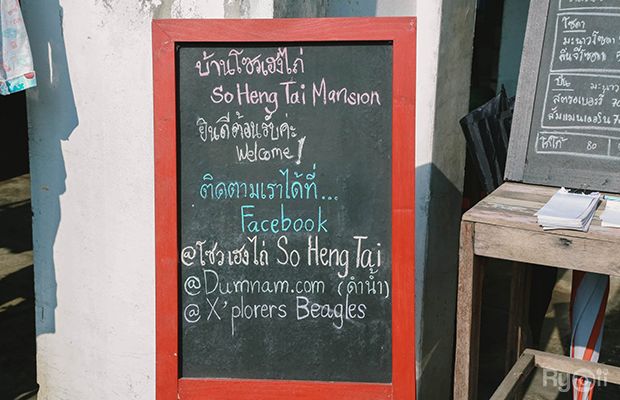 บ้านโซวเฮงไถ่
So Heng Tai Mansion
ยินดีต้อนรับค่ะ
Welcome!
ติดตามเราได้ที่...
Facebook
@โซวเฮงไถ่ So Heng Tai
@Dumnam.com (ดำน้ำ)
@X'plorers Beagles
โซดา
มะนาวโซดา
ลิ้นจี่โซดา
ปั่น มะนาว
สตรอเบอรี่ 70
ส้มแมนดาริน 70
โกโก้ 80
Ryoii